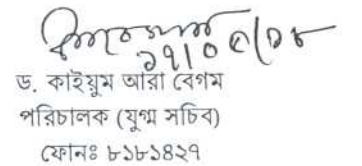 ১৭/০৫/১৮
ড. কাইয়ুম আরা বেগম
পরিচালক (যুগ্ম সচিব)
ফোনঃ ৮১৮১৪২৭